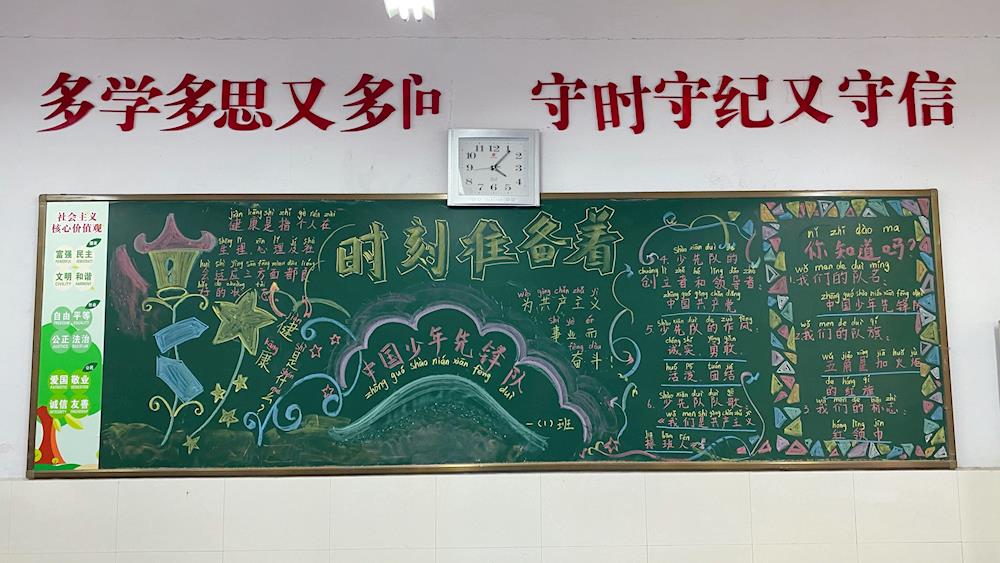 多学多思又多问 守时守纪又守信
12
1
2
3
4
5
6
7
8
9
10
11
社会主义
核心价值观
富强 民主
文明 和谐
自由 平等
公正 法治
爱国 敬业
诚信 友善
健康是指个人在
好的状态
健康
时刻准备着
wèi gòng chǎn zhǔ yì
为共产主义
shì yè ér
事业而
fèn dòu
奋斗!
中国少年先锋队
zhōng guó shào nián xiān fēng duì
一(1)班
shào xiān duì de
4.少先队的
chuàng lì zhě hé lǐng dǎo zhě
创立者和领导者:
zhōng guó gòng chǎn dǎng
中国共产党
shào xiān duì de zuò fēng
5.少先队的作风:
chéng shí yǒng gǎn
诚实 勇敢
huó pō tuán jié
活泼 团结
shào xiān duì duì gē
6.少先队队歌
wǒ men shì gòng chǎn zhǔ yì
《我们是共产主义
jiē bān rén
接班人》
nǐ zhī dào ma
你知道吗?
wǒ men de duì míng
1.我们的队名:
zhōng guó shào nián xiān fēng duì
中国少年先锋队
wǒ men de duì qí
2.我们的队旗:
wǔ jiǎo xīng jiā huǒ jù
五角星加火炬
de hóng qí
的红旗
wǒ men de biāo zhì
3.我们的标志:
hóng lǐng jīn
红领巾